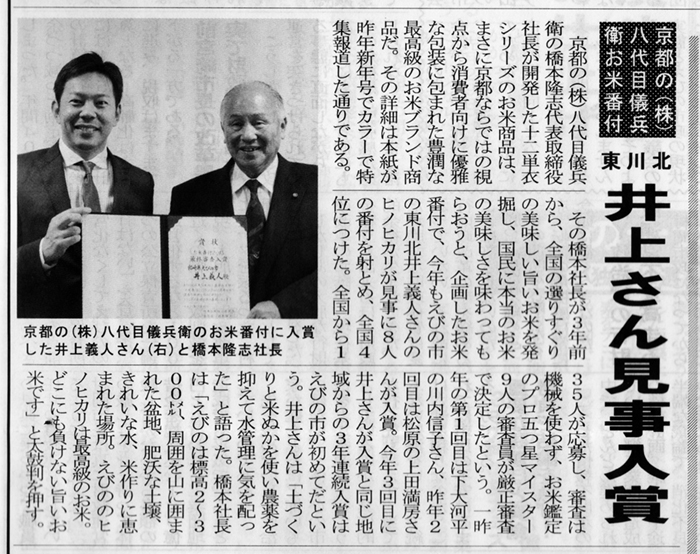 京都の(株)
八代目儀兵
衛お米番付
東川北
井上さん見事入賞
京都の(株)八代目儀兵
衛の橋本隆志代表取締役
社長が開発した十二単衣
シリーズのお米商品は、
まさに京都ならではの視
点から消費者向けに優雅
な包装に包まれた豊潤な
最高級のお米ブランド商
品だ。その詳細は本紙が
昨年新年号でカラーで特
集報道した通りである。
その橋本社長が3年前
から、全国の選りすぐり
の美味しい旨いお米を発
掘し、国民に本当のお米
の美味しさを味わっても
らおうと、企画したお米
番付で、今年もえびの市
の東川北井上義人さんの
ヒノヒカリが見事に8人
の番付を射とめ、全国4
位につけた。全国から1
35人が応募し、審査は
機械を使わず、お米鑑定
のプロ五つ星マイスター
9人の審査員が厳正審査
で決定したという。一昨
年の第1回目は下大河平
の川内信子さん、昨年2
回目は松原の上田満房さ
んが入賞。今年3回目に
井上さんが入賞と同じ地
域からの3年連続入賞は
えびの市が初めてだとい
う。井上さんは「土づく
りと米ぬかを使い農薬を
抑えて水管理に気を配っ
た」と語った。橋本社長
は「えびのは標高2~3
00㍍、周囲を山に囲ま
れた盆地、肥沃な土壌、
きれいな水、米作りに恵
まれた場所。えびののヒ
ノヒカリは最高級のお米。
どこにも負けない旨いお
米です」と太鼓判を押す。
賞状
井上義人
京都の(株)八代目儀兵衛のお米番付に入賞
した井上義人さん(右)と橋本隆志社長